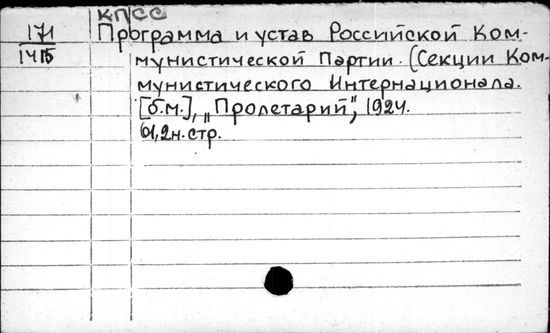 КПСС
171 Программа и устав Российской Ком-
1415 мунистической Партии. (Секции Ком-
мунистического Интернационала.
[б.м.], „Пролетарий", 1924.
61,2н.стр.